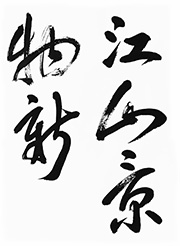 江山景
物新